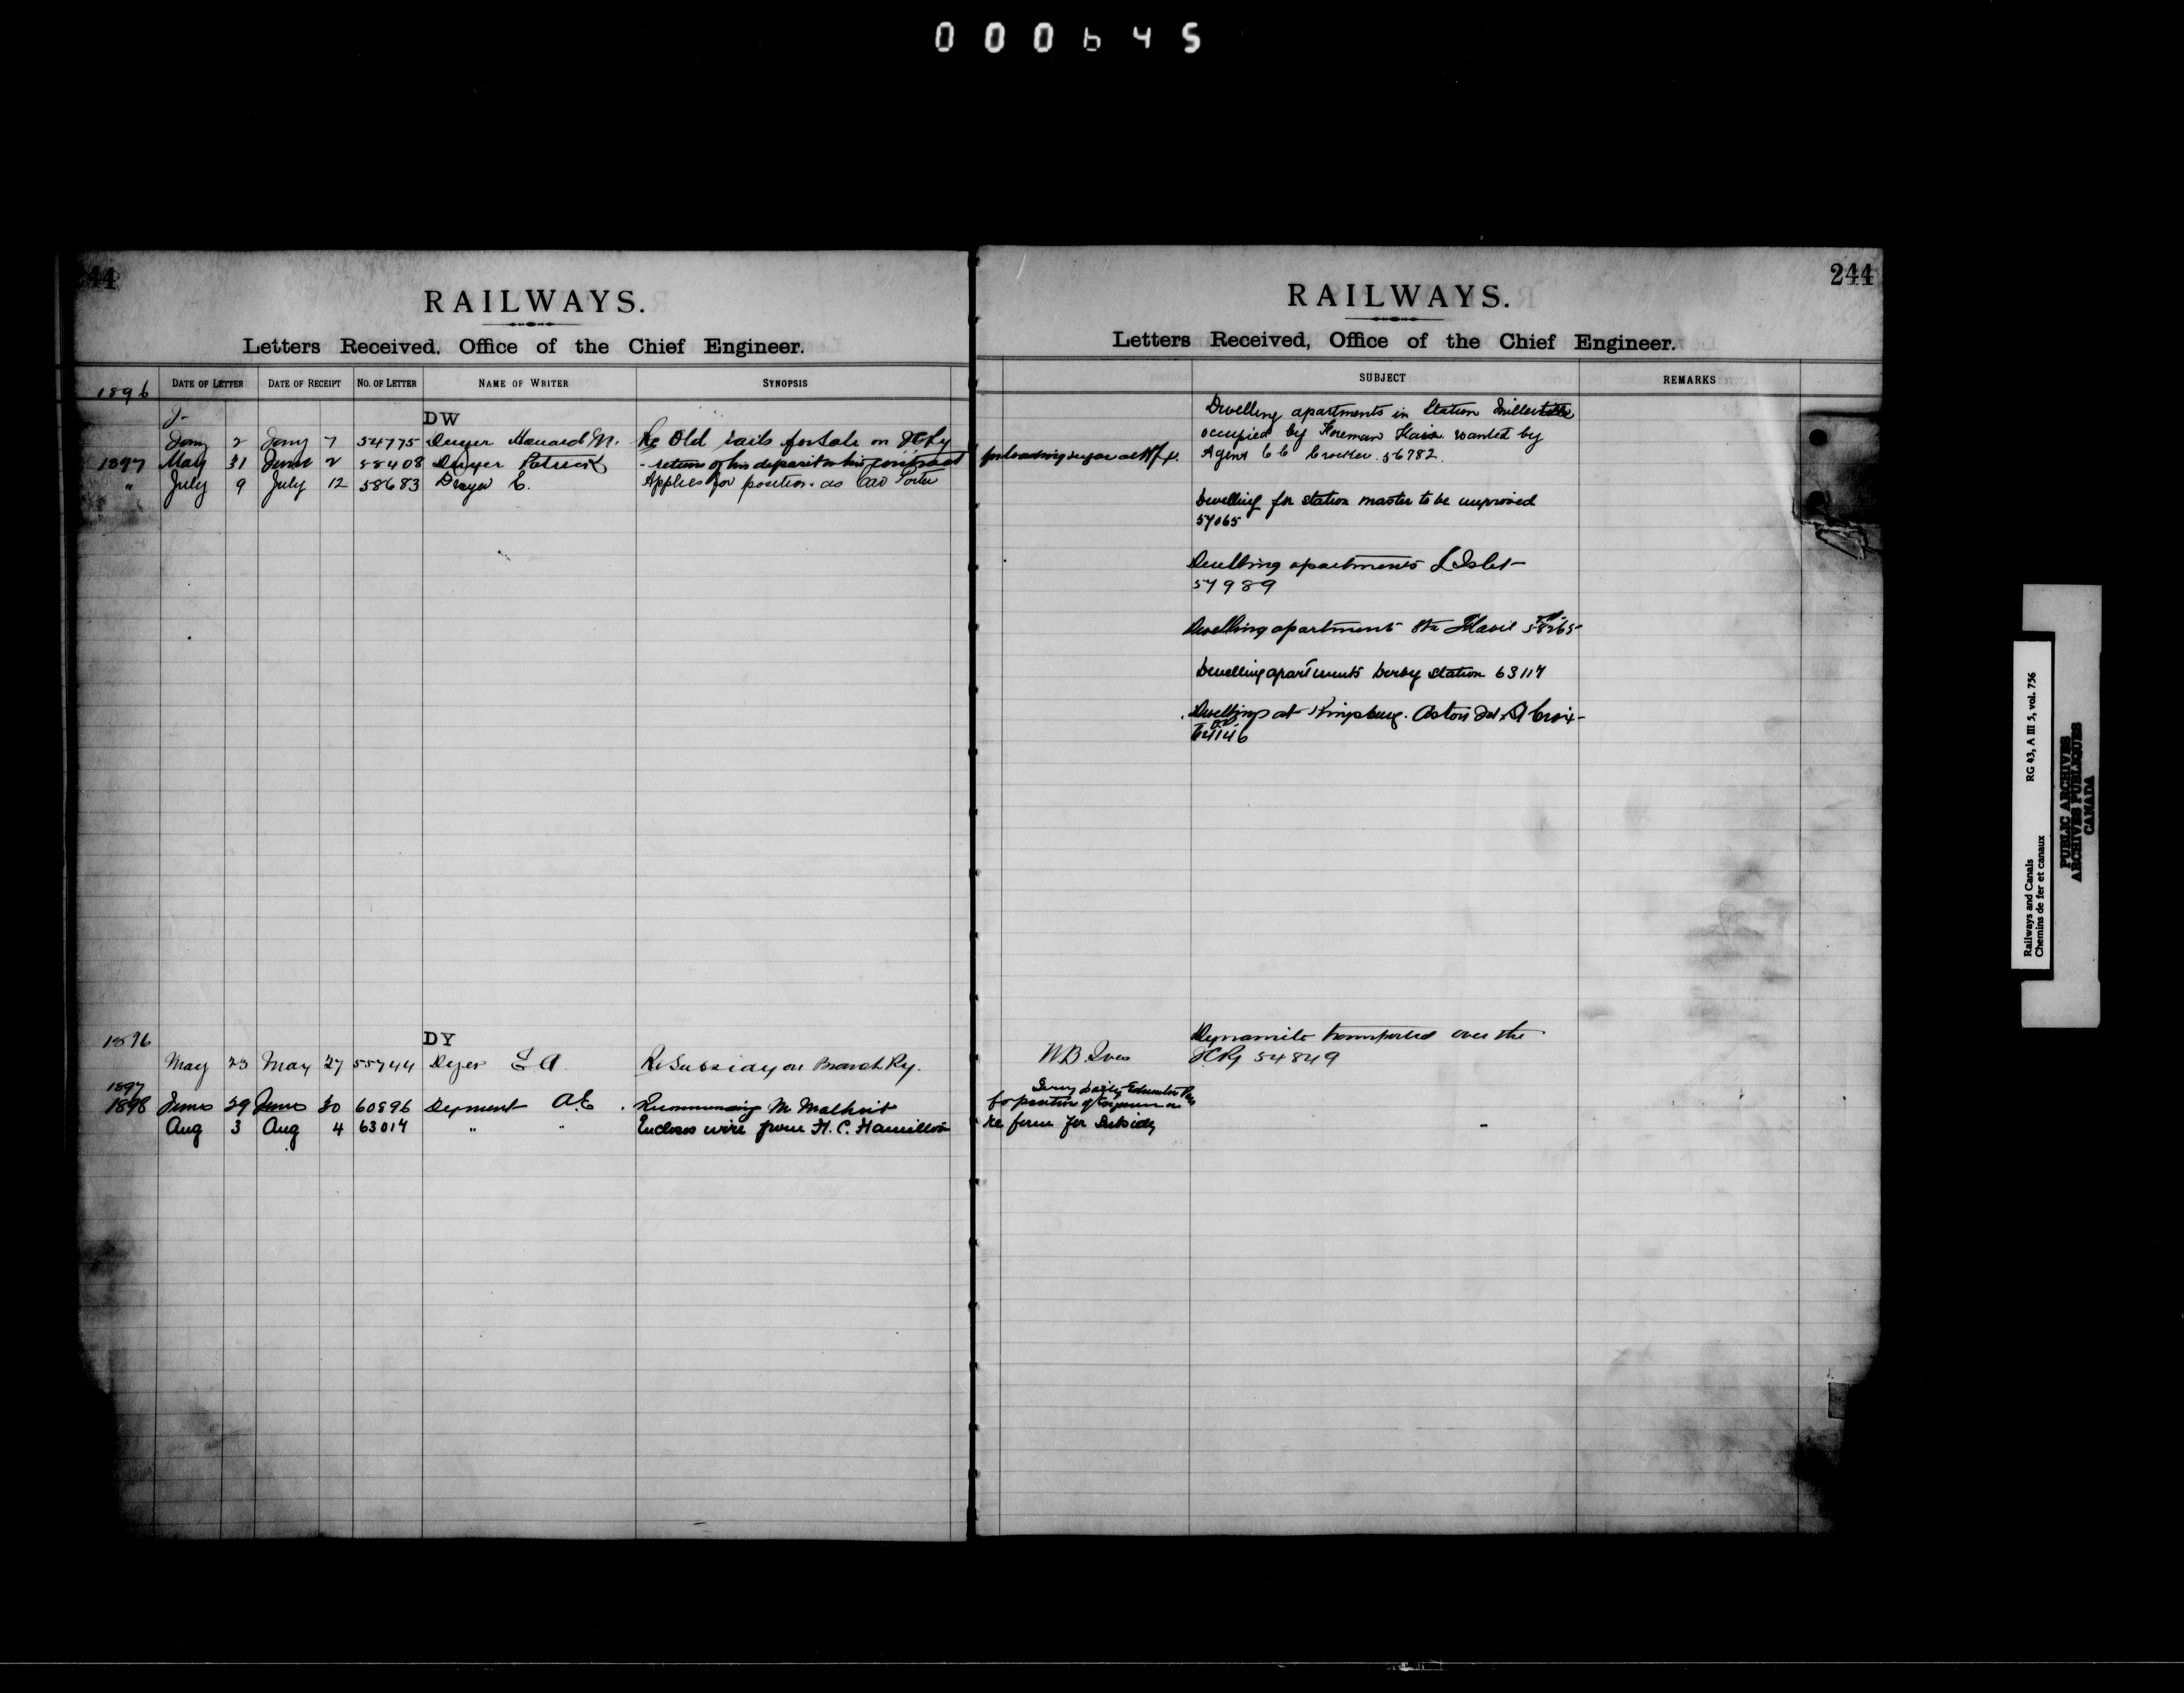 000645
44
RAILWAYS.
Letters Received, Office of the Chief Engineer.
1896
DATE OF LETTER DATE OF RECEIPT NO. OF LETTER NAME OF WRITER SYNOPSIS
DW
Jany 2 Jany 7 54775 Dwyer Howard M. Re Old rails for sale on ICRy
1897 May 31 June 2 58408 Dwyer Patrick - return of his deposit on his contract
" July 9 July 12 58683 Dwyer C. Applies for position as Car Porter
1896
DY
May 23 May 27 55744 Dyer E A Re Subsidy on Branch Ry.
1897
1898 June 29 June 30 60896 Dyment A.E. Recommending M
Aug 3 Aug 4 63017 " " Encloses wire from H. C. Hamilton
244
RAILWAYS.
Letters Received, Office of the Chief Engineer.
SUBJECT REMARKS
Dwelling apartments in Station
occupied by Foreman wanted by
for loading sugar at Hfx. Agent C C Crocker 56782
Dwelling for station master to be improved
57065
Dwelling apartments L Islet
57989
Dwelling apartment Ste Flavie 58265
Dwelling apartments Derby Station 63117
Dwellings at Kingsburg. Aston Jct. St Croix
64146
Dynamite transported over the
W.B. Ives ICRy 54849
for position of Engineer on
re form for Subsidy
Railways and Canals RG 43, A III 5, vol. 756
Chemins de fer et canaux
PUBLIC ARCHIVES
ARCHIVES PUBLIQUES
CANADA